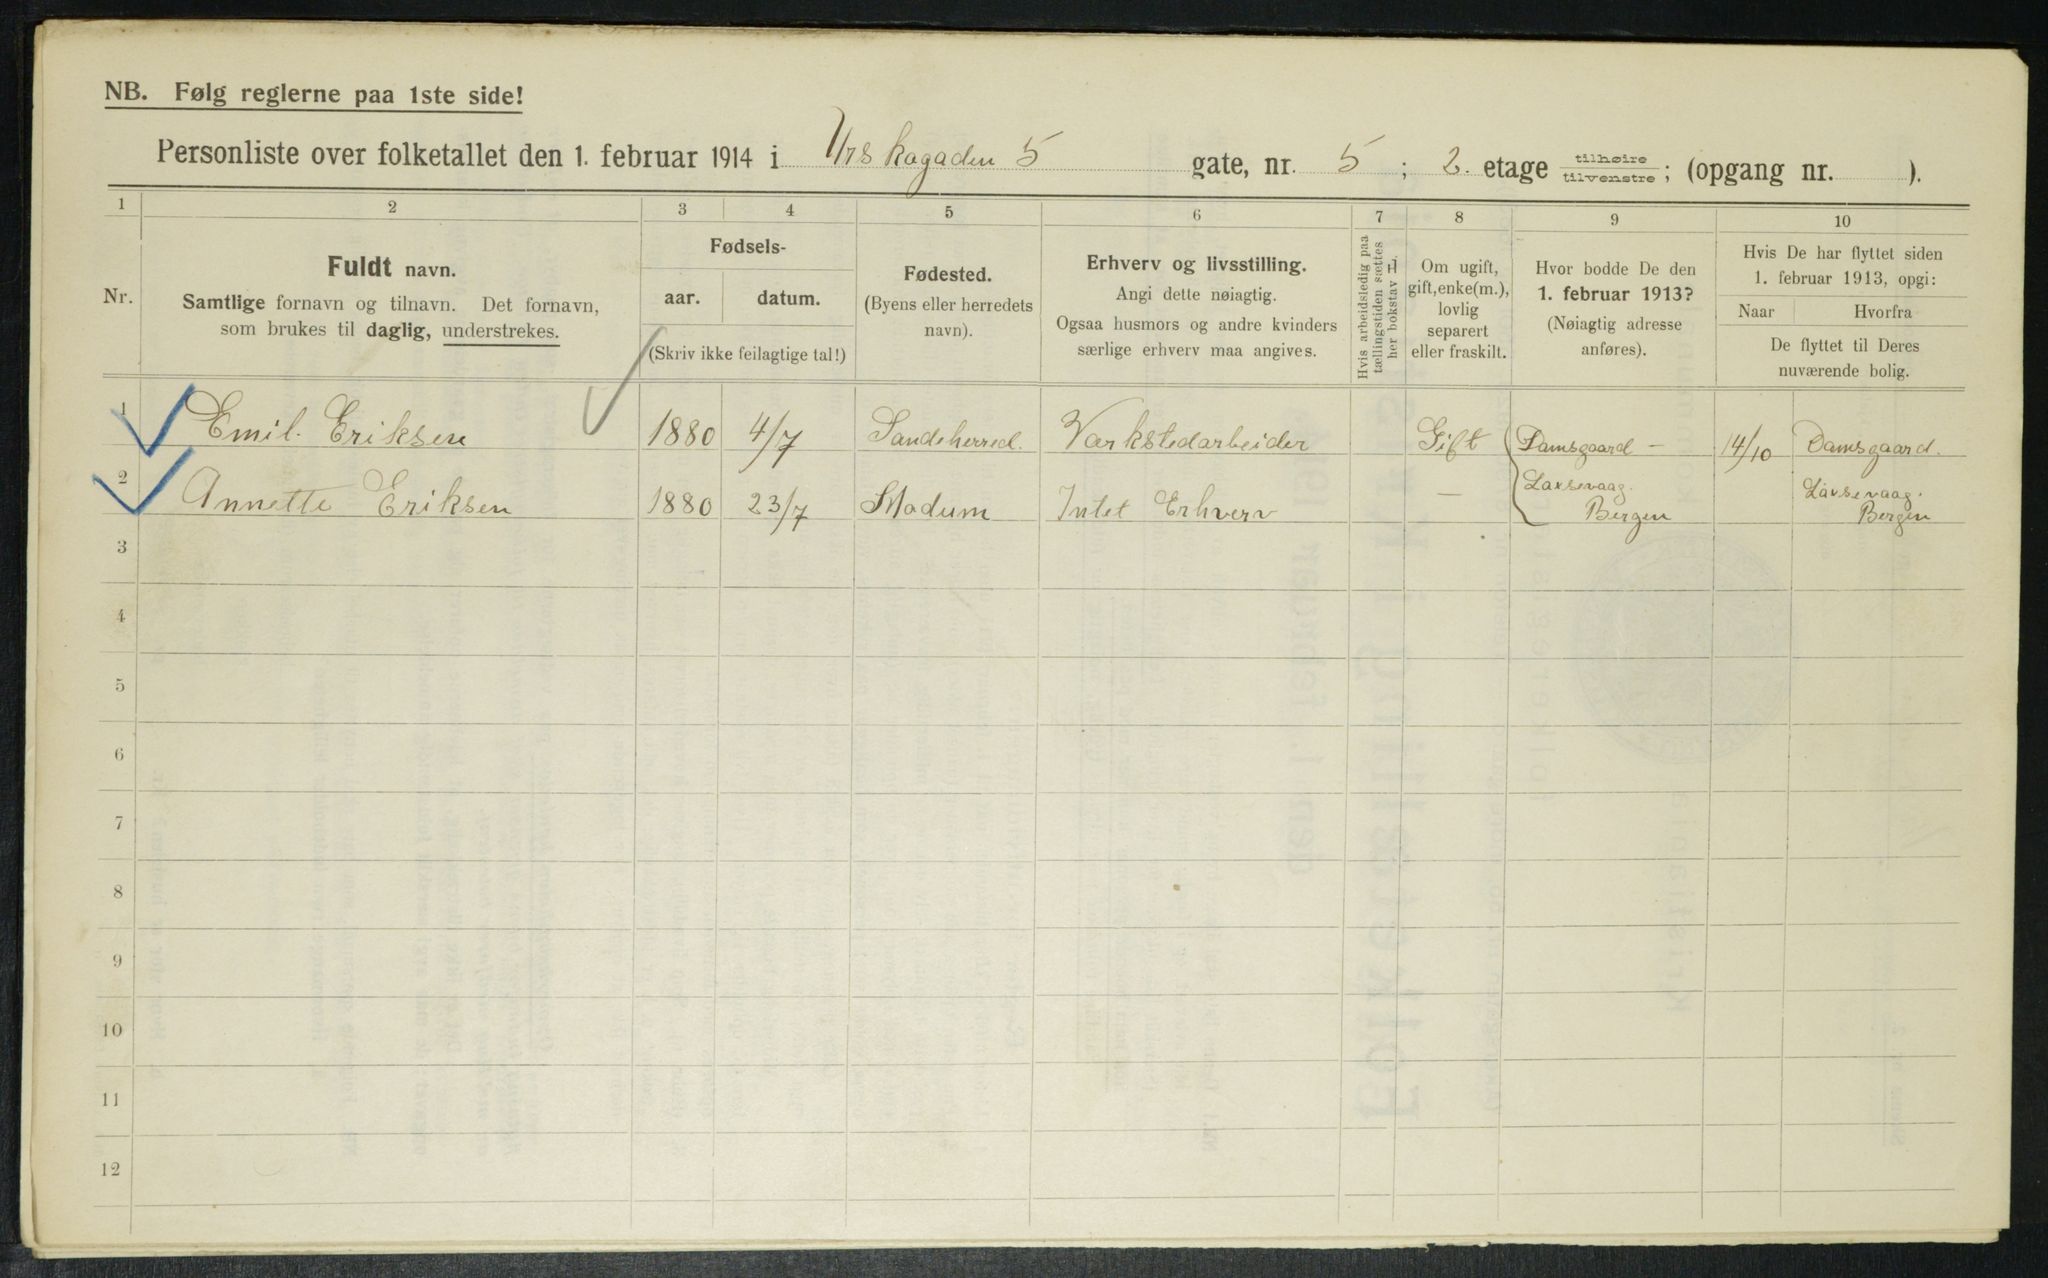 NB. Følg reglerne paa 1ste side!
Personliste over folketallet den 1. februar 1914 i Urskogaden 5 gate, nr. 5; 2. etage tilhøire tilvenstre; (opgang nr. ).
1 2 3 4 5 6 7 8 9 10
Nr.
Fuldt navn.
Samtlige fornavn og tilnavn. Det fornavn,
som brukes til daglig, understrekes.
Fødsels-
aar. datum.
(Skriv ikke feilagtige tal!)
Fødested.
(Byens eller herredets
navn).
Erhverv og livsstilling.
Angi dette nøiagtig.
Ogsaa husmors og andre kvinders
særlige erhverv maa angives.
Hvis arbeidsledig paa
tællingstiden sættes
her bokstav L
Om ugift,
gift, enke(m.),
lovlig
separert
eller fraskilt.
Hvor bodde De den
1. februar 1913?
(Nøiagtig adresse
anføres).
Hvis De har flyttet siden
1. februar 1913, opgi:
Naar Hvorfra
De flyttet til Deres
nuværende bolig.
1 Emil. Eriksen 1880 4/7 Sandeherred. Værkstedarbeider Gift Damsgaard – 14/10 Damsgaard.
2 Annette Eriksen 1880 23/7 Modum Intet Erhverv — Laxsevaag. Laxsevaag.
Bergen Bergen
3
4
5
6
7
8
9
10
11
12